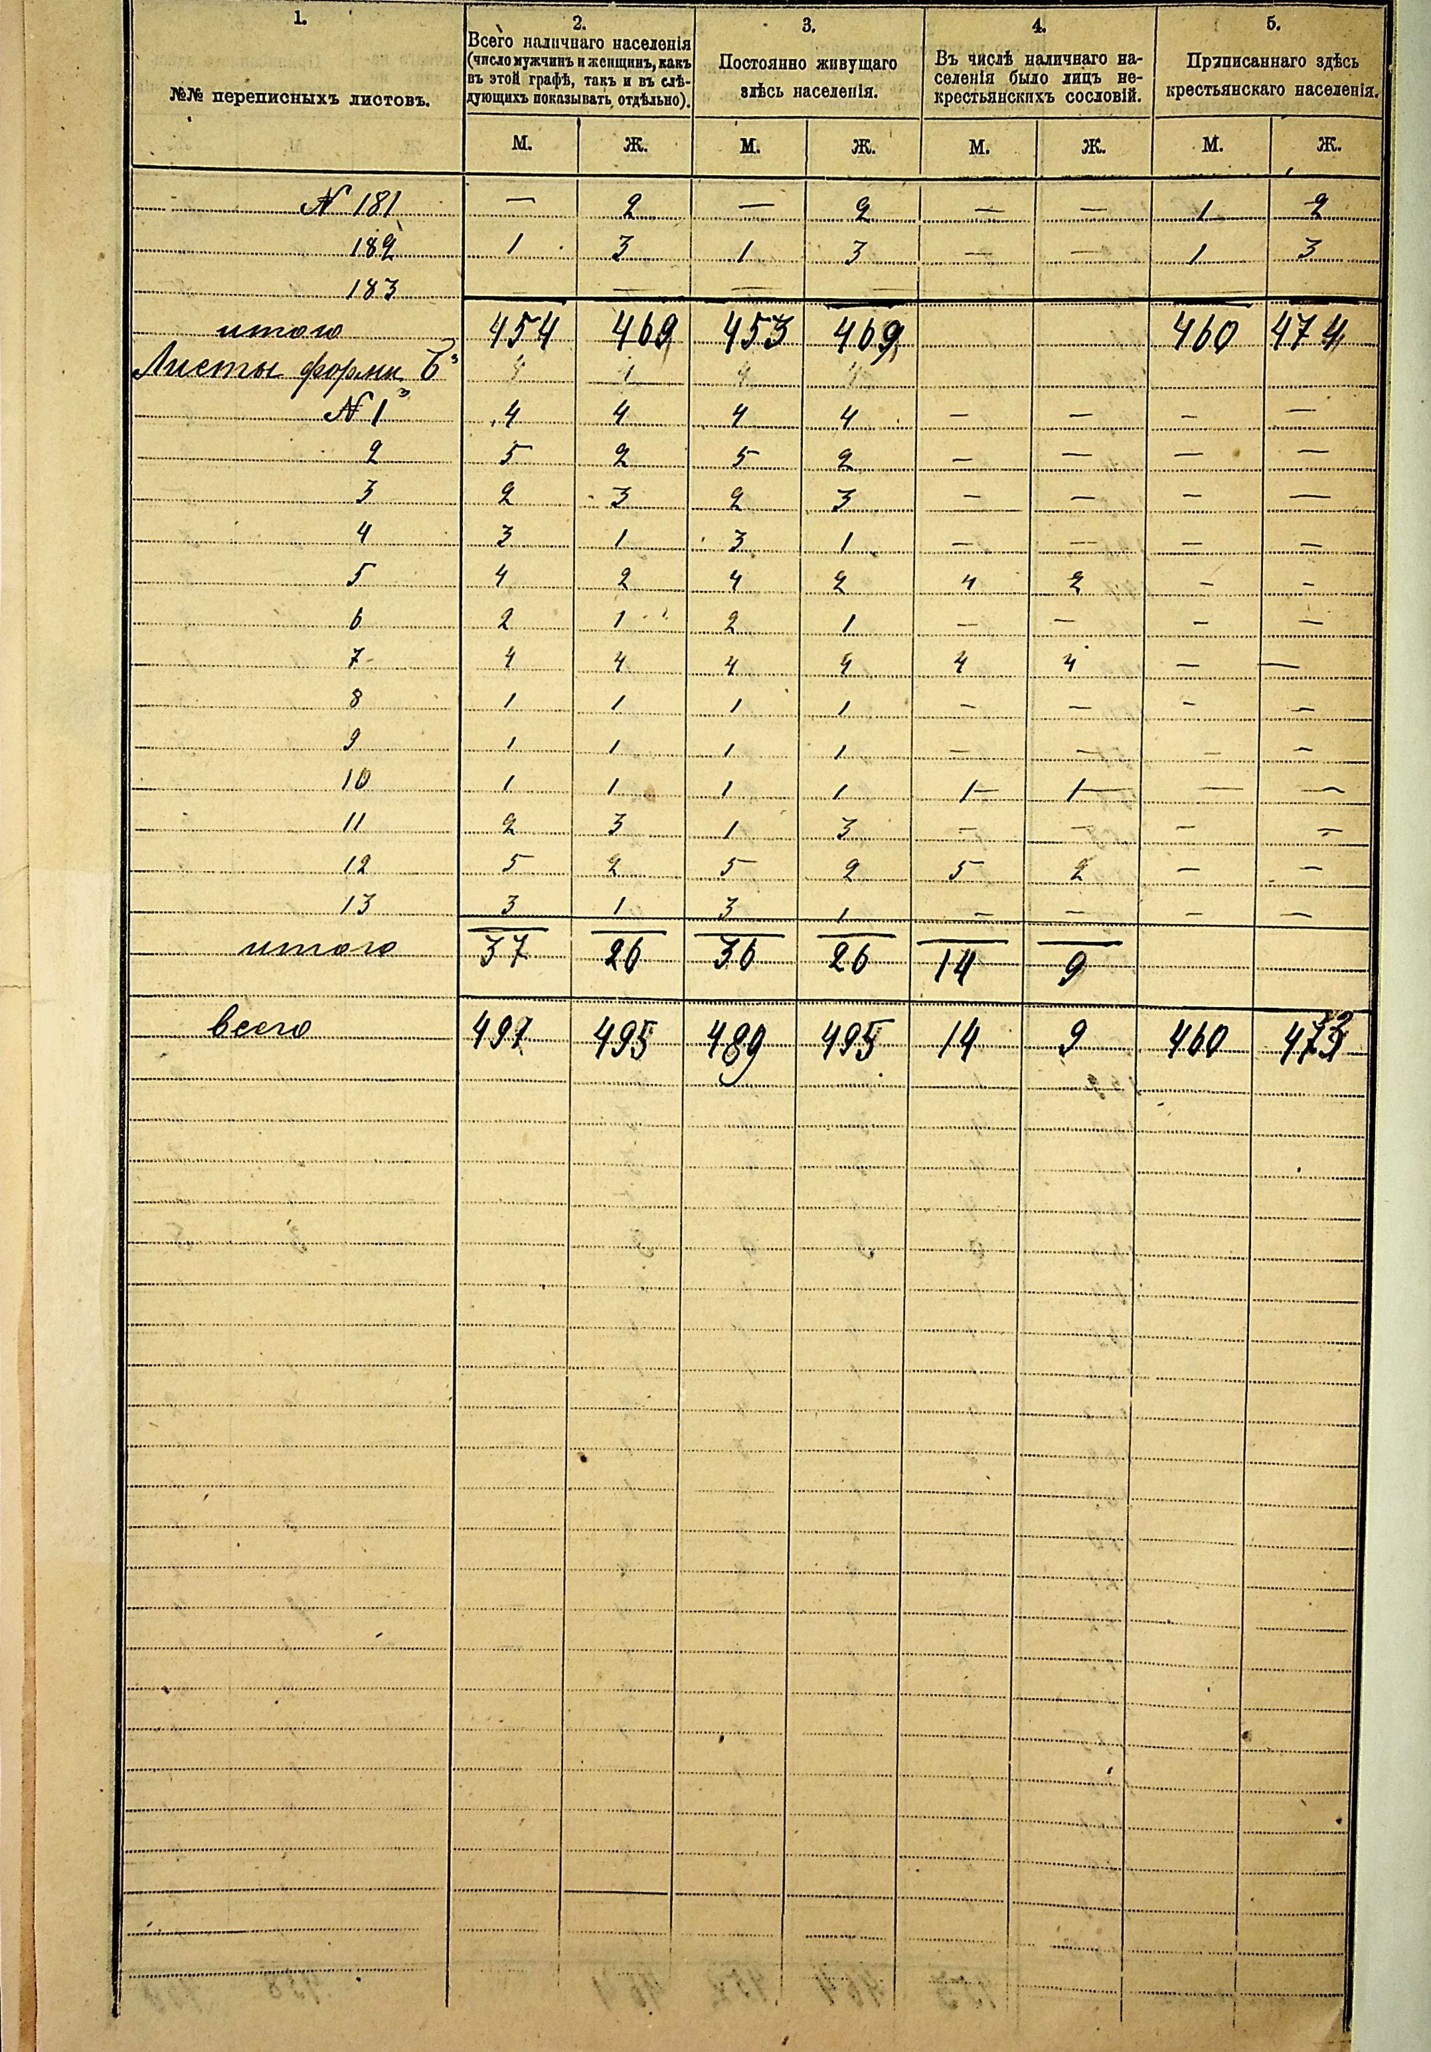 1.
№№ переписныхъ листовъ.
2.
Всего наличнаго населенія
(число мужчинъ и женщинъ, какъ
въ этой графѣ, такъ и въ слѣ-
дующихъ показывать отдѣльно).
М. Ж.
3.
Постоянно живущаго
здѣсь населенія.
М. Ж.
4.
Въ числѣ наличнаго на-
селенія было лицъ не-
крестьянскихъ сословій.
М. Ж.
5.
Приписаннаго здѣсь
крестьянскаго населенія.
М. Ж.
№ 181 — 2 — 2 — — 1 2
182 1 3 1 3 — — 1 3
183 — — — —
итого 454 469 453 469 460 474
Листы формы Б
№ 1 4 4 4 4 — — — —
2 5 2 5 2 — — — —
3 2 3 2 3 — — — —
4 3 1 3 1 — — — —
5 4 2 4 2 4 2 — —
6 2 1 2 1 — — — —
7 4 4 4 4 4 4 — —
8 1 1 1 1 — — — —
9 1 1 1 1 — — — —
10 1 1 1 1 1 1 — —
11 2 3 1 3 — — — —
12 5 2 5 2 5 2 — —
13 3 1 3 1 — — — —
итого 37 26 36 26 14 9
всего 491 495 489 495 14 9 460